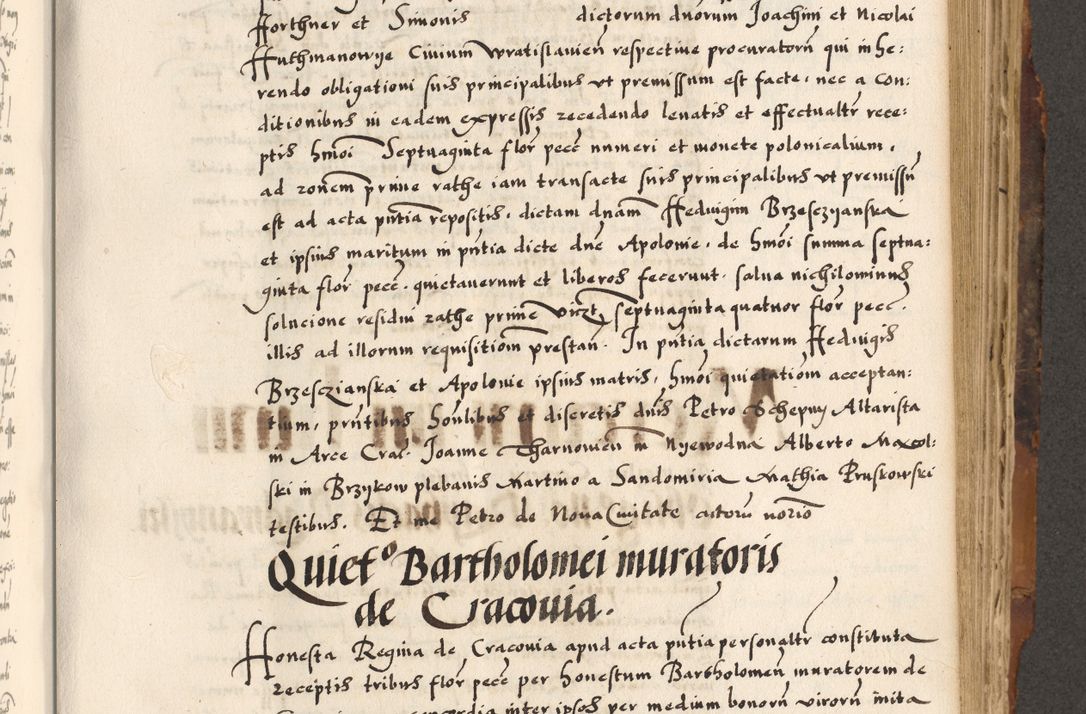 Horthner et Simonis dictorum dnorum Joachim et Nicolai
Huthmanowye Civium wratislavien respective procuratorn qui in he:
rendo obligationi suis principalibus vt premissum est facte, nec a con:
ditionibus in eadem expressis recedendo levatis et effectualtr rece:
ptis hmoi Septuaginta flor pecc numeri et monete polonicalium,
ad ronem prime rathe iam transacte suis principalibus vt premissu
est ad acta pntia repositis, dictam dnam Heduigim Brzesczyanska
et ipsius maritum in pntia dicte dne Apolonie, de hmoi summa septua:
ginta flor pecc. quietaverunt et liberos fecerunt. salva nichilominus
solucione residui rathe prime vizt septuaginta quatuor flor pecc.
illis ad illorum requisitiom prestan. In pntia dictarum Heduigis
Brzesczianska et Apolonie ipsius matris, hmoi quietatiom acceptan:
tium, pntibus honlibus et discretis dnis Petro Schepny Altarista
in Arce Crac. Joanne Tharnovicn in Nyewodna Alberto Maxol:
ski in Brzykow plebanis Martino a Sandomiria Mathia Pruskowski
testibus. Et me Petro de Nova Civitate actoru norio
Quiet⁰ Bartholomei muratoris
de Cracovia.
Honesta Regina de Cracovia apud acta pntia personaltr constituta
receptis tribus flor pecc per honestum Bartholomen muratorem de
inter ipsos per medium bonorn virorn inita